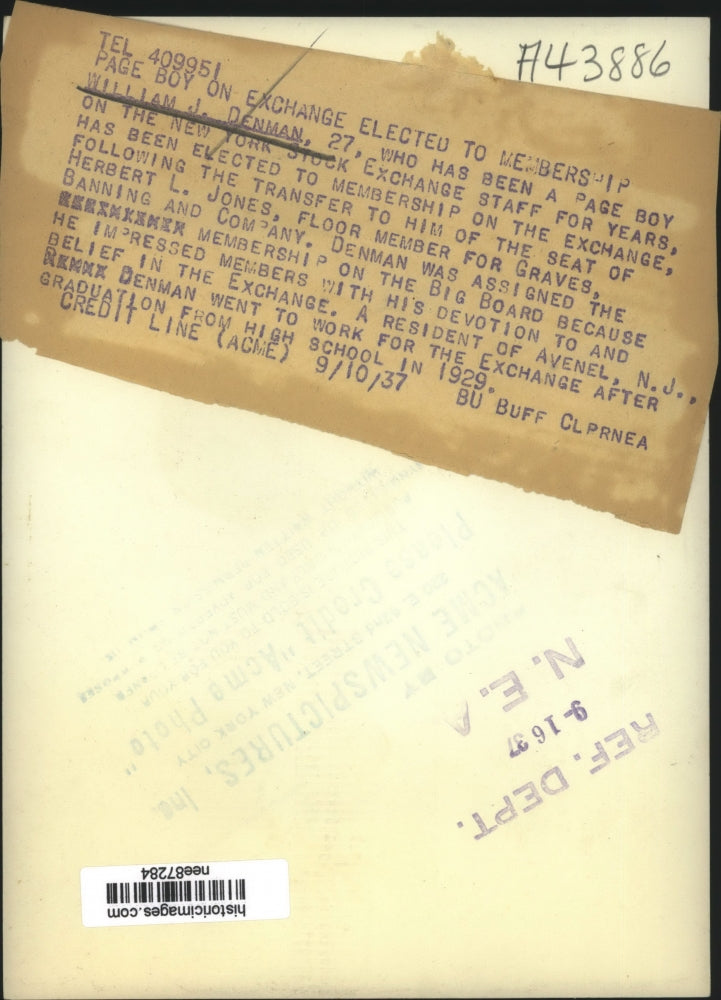 A43886
TEL 409951
PAGE BOY ON EXCHANGE ELECTED TO MEMBERSHIP
WILLIAM J. DENMAN, 27, WHO HAS BEEN A PAGE BOY
ON THE NEW YORK STOCK EXCHANGE STAFF FOR YEARS,
HAS BEEN ELECTED TO MEMBERSHIP ON THE EXCHANGE,
FOLLOWING THE TRANSFER TO HIM OF THE SEAT OF
HERBERT L. JONES, FLOOR MEMBER FOR GRAVES,
BANNING AND COMPANY. DENMAN WAS ASSIGNED THE
MEMBERSHIP ON THE BIG BOARD BECAUSE
HE IMPRESSED MEMBERS WITH HIS DEVOTION TO AND
BELIEF IN THE EXCHANGE. A RESIDENT OF AVENEL, N.J.,
DENMAN WENT TO WORK FOR THE EXCHANGE AFTER
GRADUATION FROM HIGH SCHOOL IN 1929.
CREDIT LINE (ACME) 9/10/37 BU BUFF CLPRNEA
PHOTO BY
ACME NEWSPICTURES, Inc.
220 E. 42nd STREET, NEW YORK CITY
Please Credit "Acme Photo"
N. E. A
9-16 37
REF. DEPT.
historicimages.com
nee87284